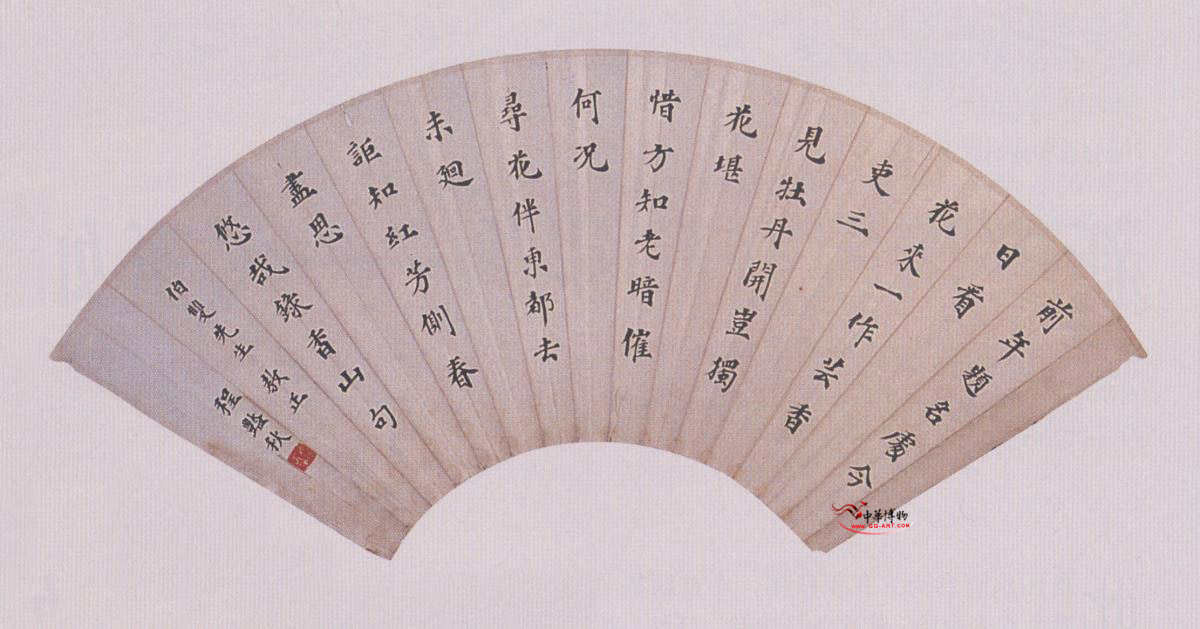 前年題名處今
日看
花來一作芸香
吏三
見牡丹開豈獨
花堪
惜方知老暗催
何況
尋花伴東都去
未迴
詎知紅芳側春
盡思
悠哉錄香山句
伯雙先生 教正
程豔秋
中華博物
www.GG-ART.COM